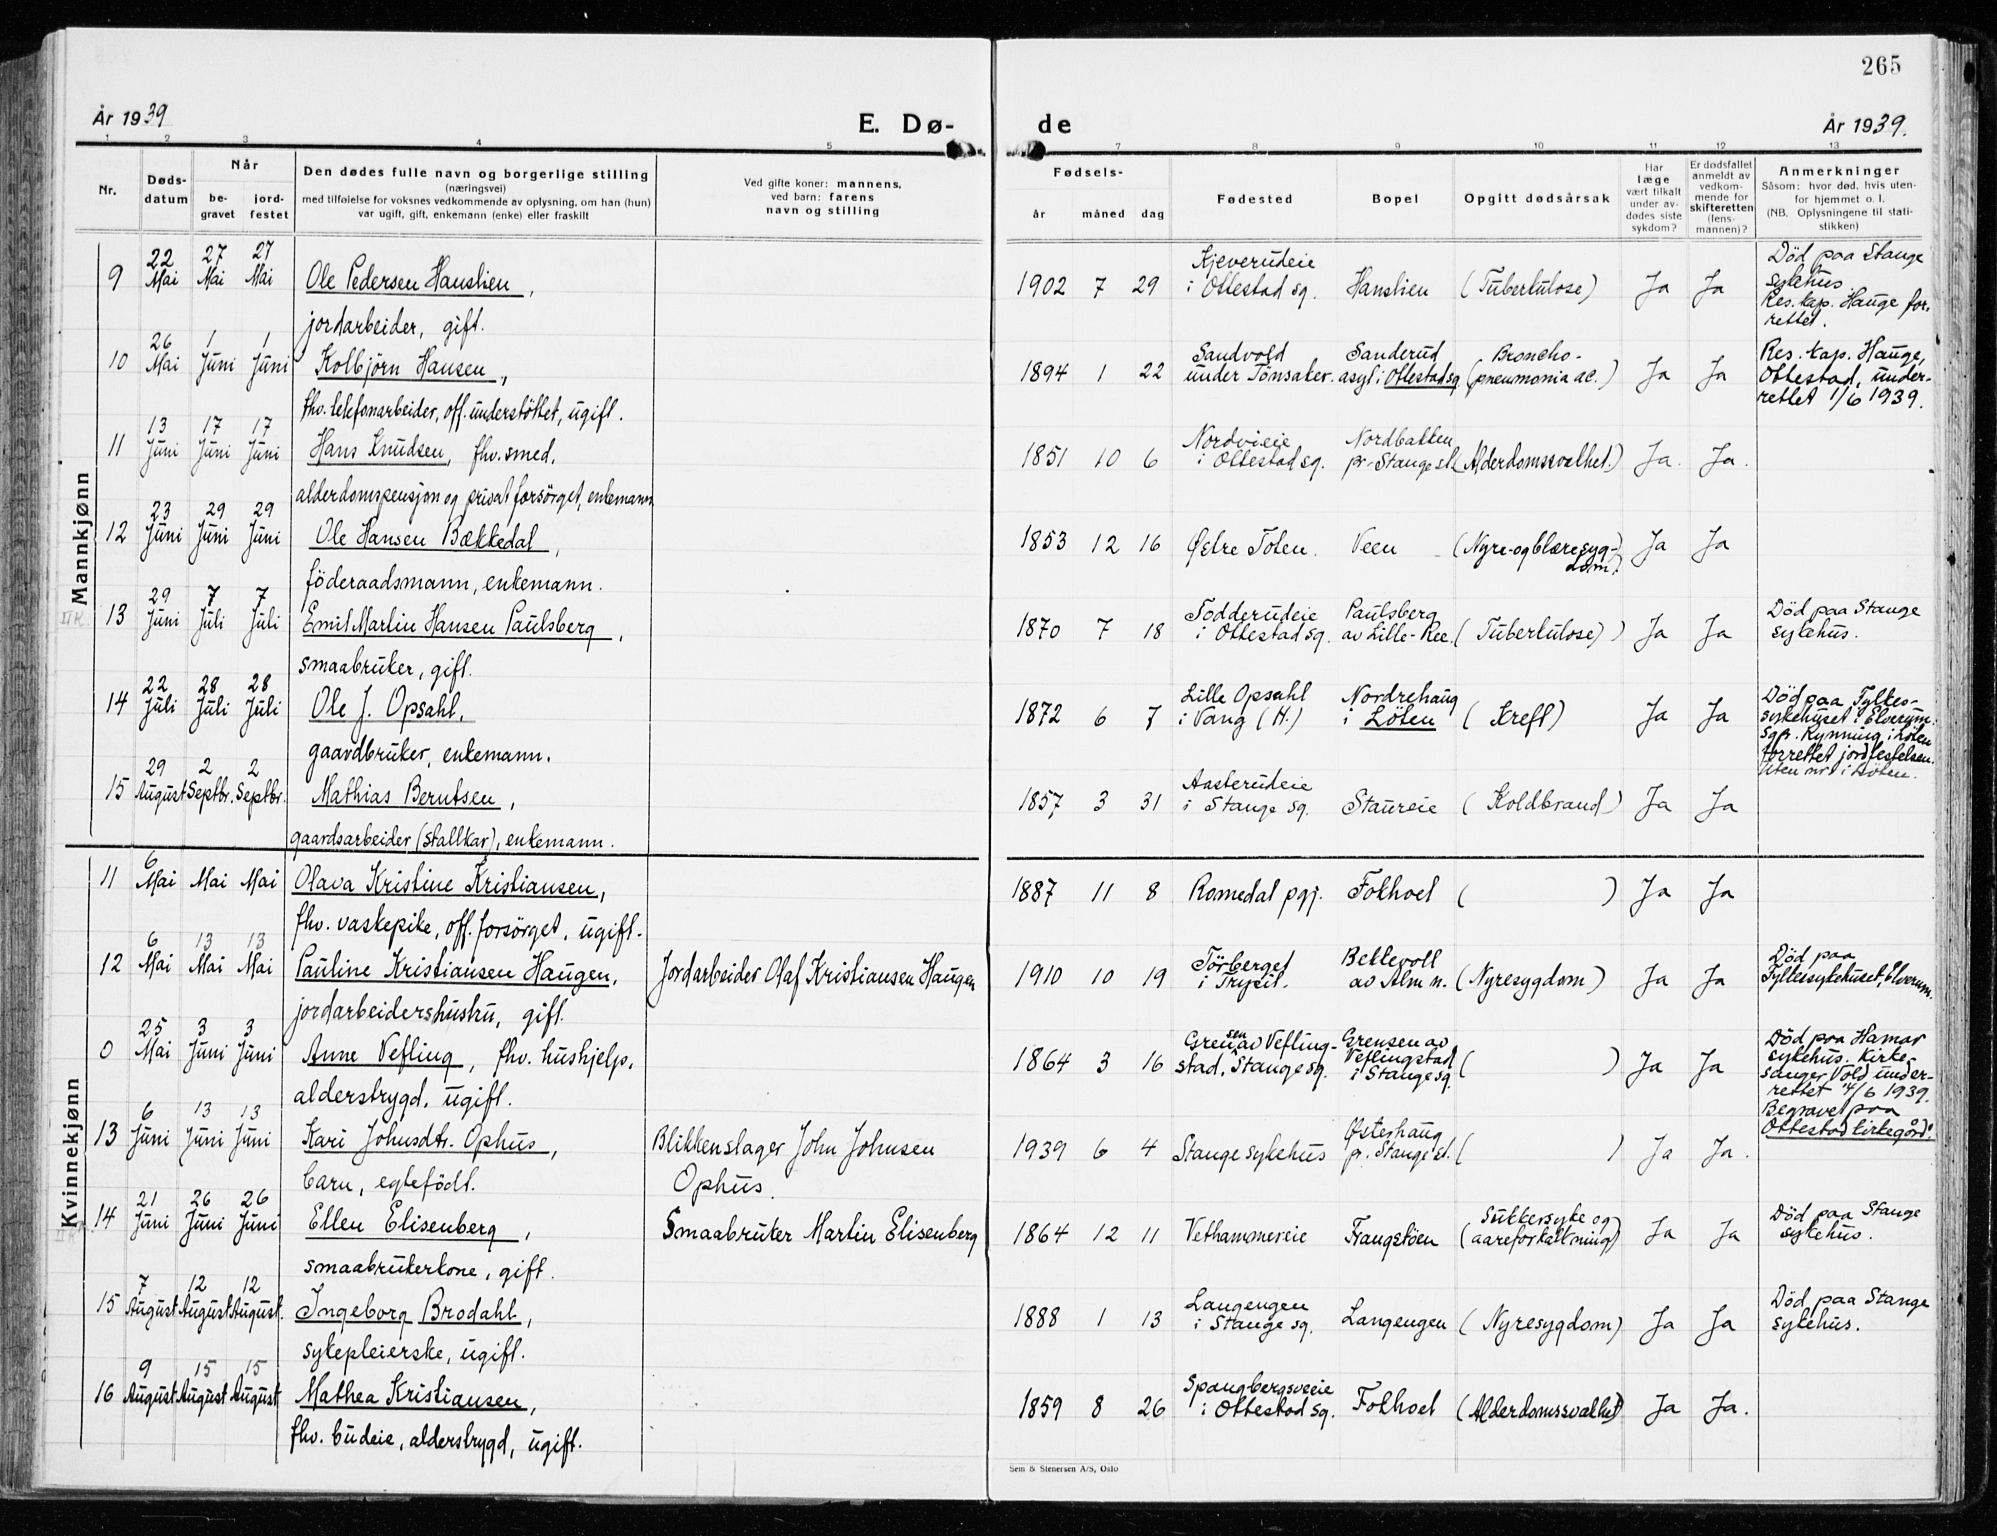 265
År 1939
E. Dø-
de
År 1939.
1 2 3 4 5 7 8 9 10 11 12 13
Nr.
Døds-
datum
Når
be-
gravet
jord-
festet
Den dødes fulle navn og borgerlige stilling
(næringsvei)
med tilføielse for voksnes vedkommende av oplysning, om han (hun)
var ugift, gift, enkemann (enke) eller fraskilt
Ved gifte koner: mannens,
ved barn: farens
navn og stilling
Fødsels-
år måned dag
Fødested
Bopel
Opgitt dødsårsak
Har
læge
vært tilkalt
under av-
dødes siste
sykdom?
Er dødsfallet
anmeldt av
vedkom-
mende for
skifteretten
(lens-
mannen)?
Anmerkninger
Såsom: hvor død, hvis uten-
for hjemmet o. l.
(NB. Oplysningene til stati-
stikken)
Mannkjønn
9 22 Mai 27 Mai 27 Mai Ole Pedersen Hanslien,
jordarbeider, gift.
1902 7 29 Kjeverudeie
i Ottestad sg. Hanslien (Tuberkulose) Ja Ja Død paa Stange
sykehus.
Res. kap. Hauge for-
rettet.
10 26 Mai 1 Juni 1 Juni Kolbjörn Hansen,
fhv. telefonarbeider, off. understöttet, ugift.
1894 1 22 Sandvold
under Tönsaker. Sanderud
asyl i Ottestad sg. (Broncho-
pneumonia ac.) Ja Ja Res. kap. Hauge,
Ottestad, under-
rettet 1/6 1939.
11 13 Juni 17 Juni 17 Juni Hans Knudsen, fhv. smed,
alderdomspensjon og privat forsörget, enkemann.
1851 10 6 Nordvieie
i Ottestad sg. Nordbakken
pr. Stange st. (Alderdomssvakhet.) Ja. Ja.
12 23 Juni 29 Juni 29 Juni Ole Hansen Bækkedal,
föderaadsmann, enkemann.
1853 12 16 Østre Toten. Veen (Nyre-og blæresyg-
dom.) Ja Ja
13 29 Juni 7 Juli 7 Juli Emil Martin Hansen Paulsberg,
smaabruker, gift.
1870 7 18 Todderudeie
i Ottestad sg. Paulsberg
av Lille-Ree. (Tuberkulose) Ja Ja Död paa Stange
sykehus.
14 22 Juli 28 Juli 28 Juli Ole J. Opsahl,
gaardbruker, enkemann.
1872 6 7 Lille Opsahl
i Vang (H.) Nordrehaug
i Löten (Kreft) Ja Ja Död paa Fylkes-
sykehuset i Elverum.
Sgpr. Rynning i Löten
forrettet jordfestelsen.
Uten nr. i Löten.
15 29 August 2 Septbr. 2 Septbr. Mathias Berntsen,
gaardsarbeider (stallkar), enkemann.
1857 3 31 Aasterudeie
i Stange sg. Staureie (Koldbrand) Ja Ja
Kvinnekjønn
11 6 Mai Mai Mai Olava Kristine Kristiansen,
fhv. vaskepike, off. forsörget, ugift.
1887 11 8 Romedal pgj. Fokhoel ( ) Ja Ja
12 6 Mai 13 Mai 13 Mai Pauline Kristiansen Haugen, Jordarbeider Olaf Kristiansen Haugen
jordarbeidershustru, gift.
1910 10 19 Törberget
i Trysil. Bekkevoll
av Alm n. (Nyresygdom) Ja Ja Död paa
Fylkessykehuset, Elverum.
0 25 Mai 3 Juni 3 Juni Anne Vefling, fhv. hushjelp,
alderstrygd, ugift.
1864 3 16 Grensen av Vefling-
stad, Stange sg. Grensen av
Veflingstad
i Stange sg. ( ) Ja Ja Död paa Hamar
sykehus. Kirke-
sanger Vold under-
rettet 7/6 1939.
Begravet paa
Ottestad kirkegård.
13 6 Juni 13 Juni 13 Juni Kari Johnsdtr. Ophus, Blikkenslager John Johnsen
barn, egtefödt. Ophus.
1939 6 4 Stange sykehus Østerhaug
pr. Stange st. ( ) Ja Ja.
14 21 Juni 26 Juni 26 Juni Ellen Elisenberg, Smaabruker Martin Elisenberg
smaabrukerkone, gift.
1864 12 11 Vethammereie Frangstöen (Sukkersyke og
aareforkalkning) Ja Ja Död paa Stange
sykehus.
15 7 August 12 August 12 August. Ingeborg Brodahl,
sykepleierske, ugift.
1888 1 13 Langengen
i Stange sg. Langengen (Nyresygdom) Ja Ja Död paa Stange
sykehus.
16 9 August 15 August 15 August Mathea Kristiansen,
fhv. budeie, alderstrygd, ugift.
1859 8 26 Spangbergsveie
i Ottestad sg. Fokhoel (Alderdomssvakhet) Ja Ja.
Sem & Stenersen A/S, Oslo